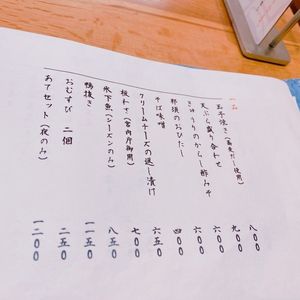 一品
玉子焼き（蕎麦だし使用） 八〇〇
天ぷら盛り合わせ 九〇〇
きゅうりのからし酢みそ 六〇〇
那須のおひたし 六〇〇
そば味噌 四〇〇
クリームチーズの返し漬け 六五〇
板わさ（宮内庁御用） 七〇〇
氷下魚（シーズンのみ） 八五〇
鴨抜き 一一五〇
おむすび 二個 二五〇
あてセット（夜のみ） 一二〇〇